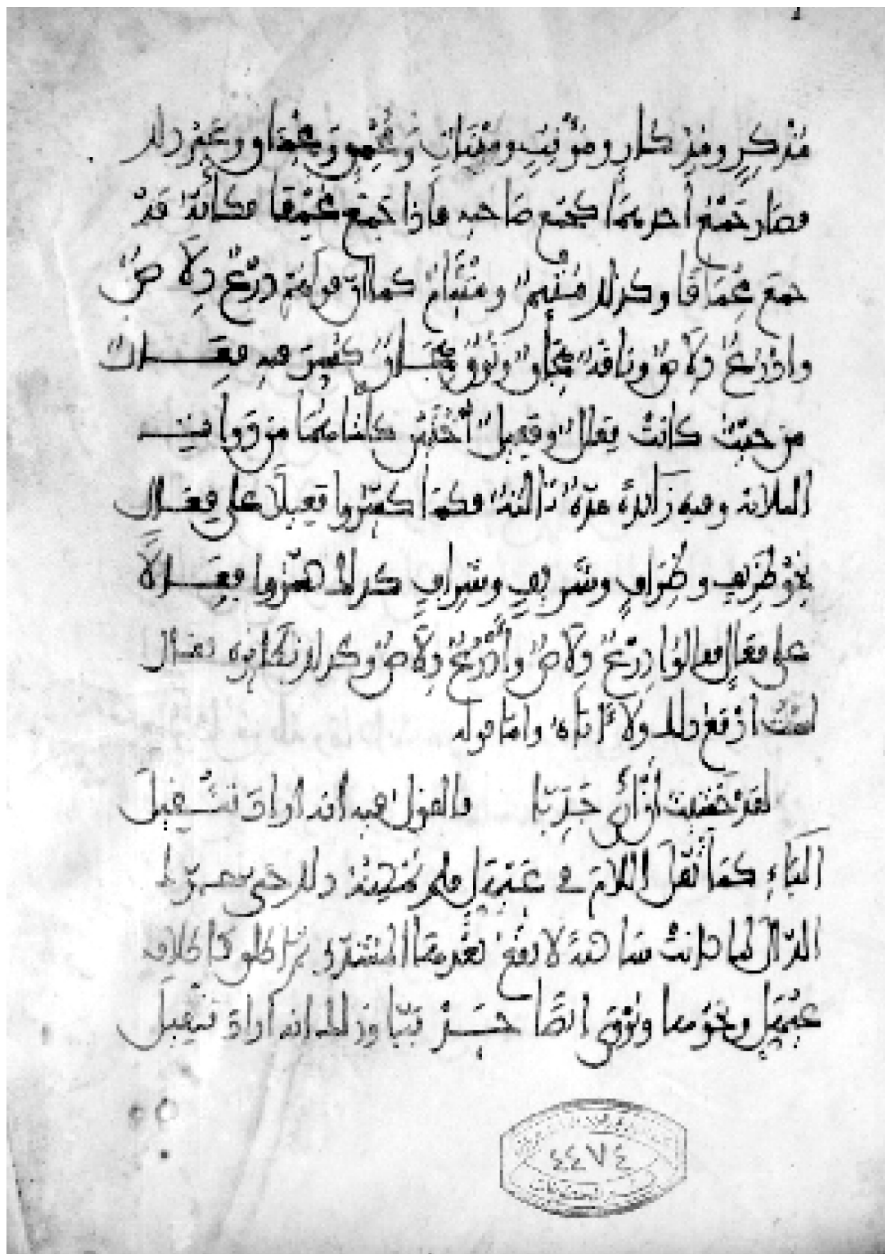 مذكر ومذكار ومؤنث ومئناث ومحمق ومحماق وغير ذلك
فصار جمع أحدهما كجمع صاحبه فإذا جمع محمقا فكأنه قد
جمع محماقا وكذلك متئم ومتآم كما أن قولهم درع دلاص
وأدرع دلاص وناقة هجان ونوق هجان كسر فيه فعال
من حيث كانت فعال وفعيل أختين كلتاهما من ذوات
الثلاثة وفيه زائدة مدة ثالثة فكما كسروا فعيلا على فعال
نحو ظريف وظراف وشريف وشراف كذلك كسروا فعالا
على فعال فقالوا درع دلاص وأدرع دلاص وكذلك نظائره
لست أدفع ذلك ولا آباه وأما قوله
لقد خشيت أن أرى جدبا فالقول فيه أنه أراد تثقيل
الباء كما ثقل اللام في عيهل فلم يمكنه ذلك حتى حرك
الدال لما كانت ساكنة لا يقع بعدها المشدد ثم أطلق كإطلاقه
عيهل ونحوها ويروى أيضا جدببا وذلك أنه أراد تثقيل
٤٤٧٤